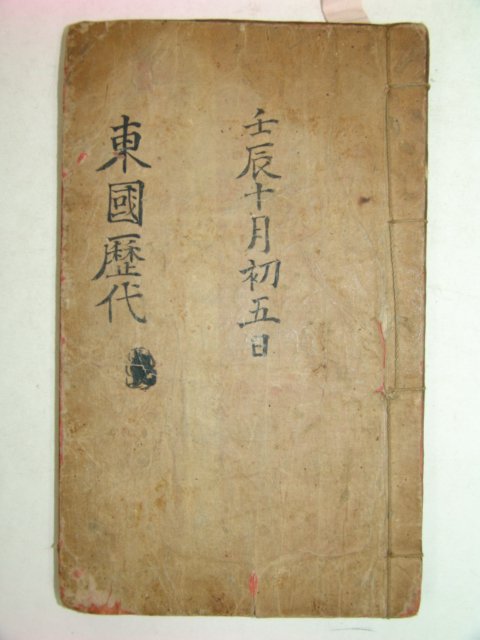 壬辰十月初五日
東國歷代